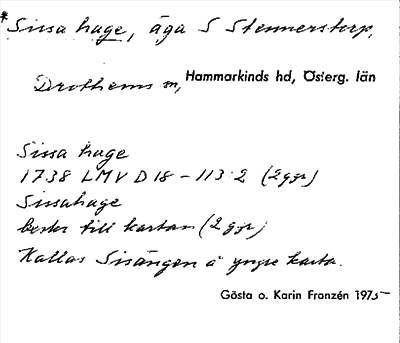 *Sissa hage, äga S Stennerstorp,
Drothems sn, Hammarkinds hd, Österg. län
Sissa hage
1738 LMV D 18 - 113:2 (2 ggr)
Sissahage
beskr till kartan (2 ggr)
Kallas Sisängen å yngre karta.
Gösta o. Karin Franzén 1975